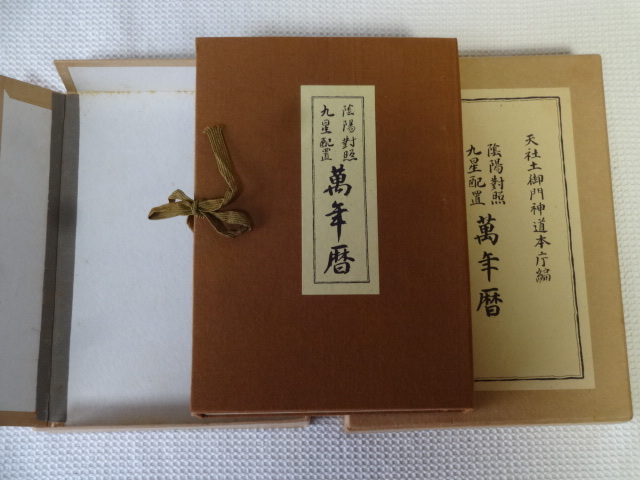 陰陽對照
九星配置
萬年暦
天社土御門神道本庁編
陰陽對照
九星配置
萬年暦